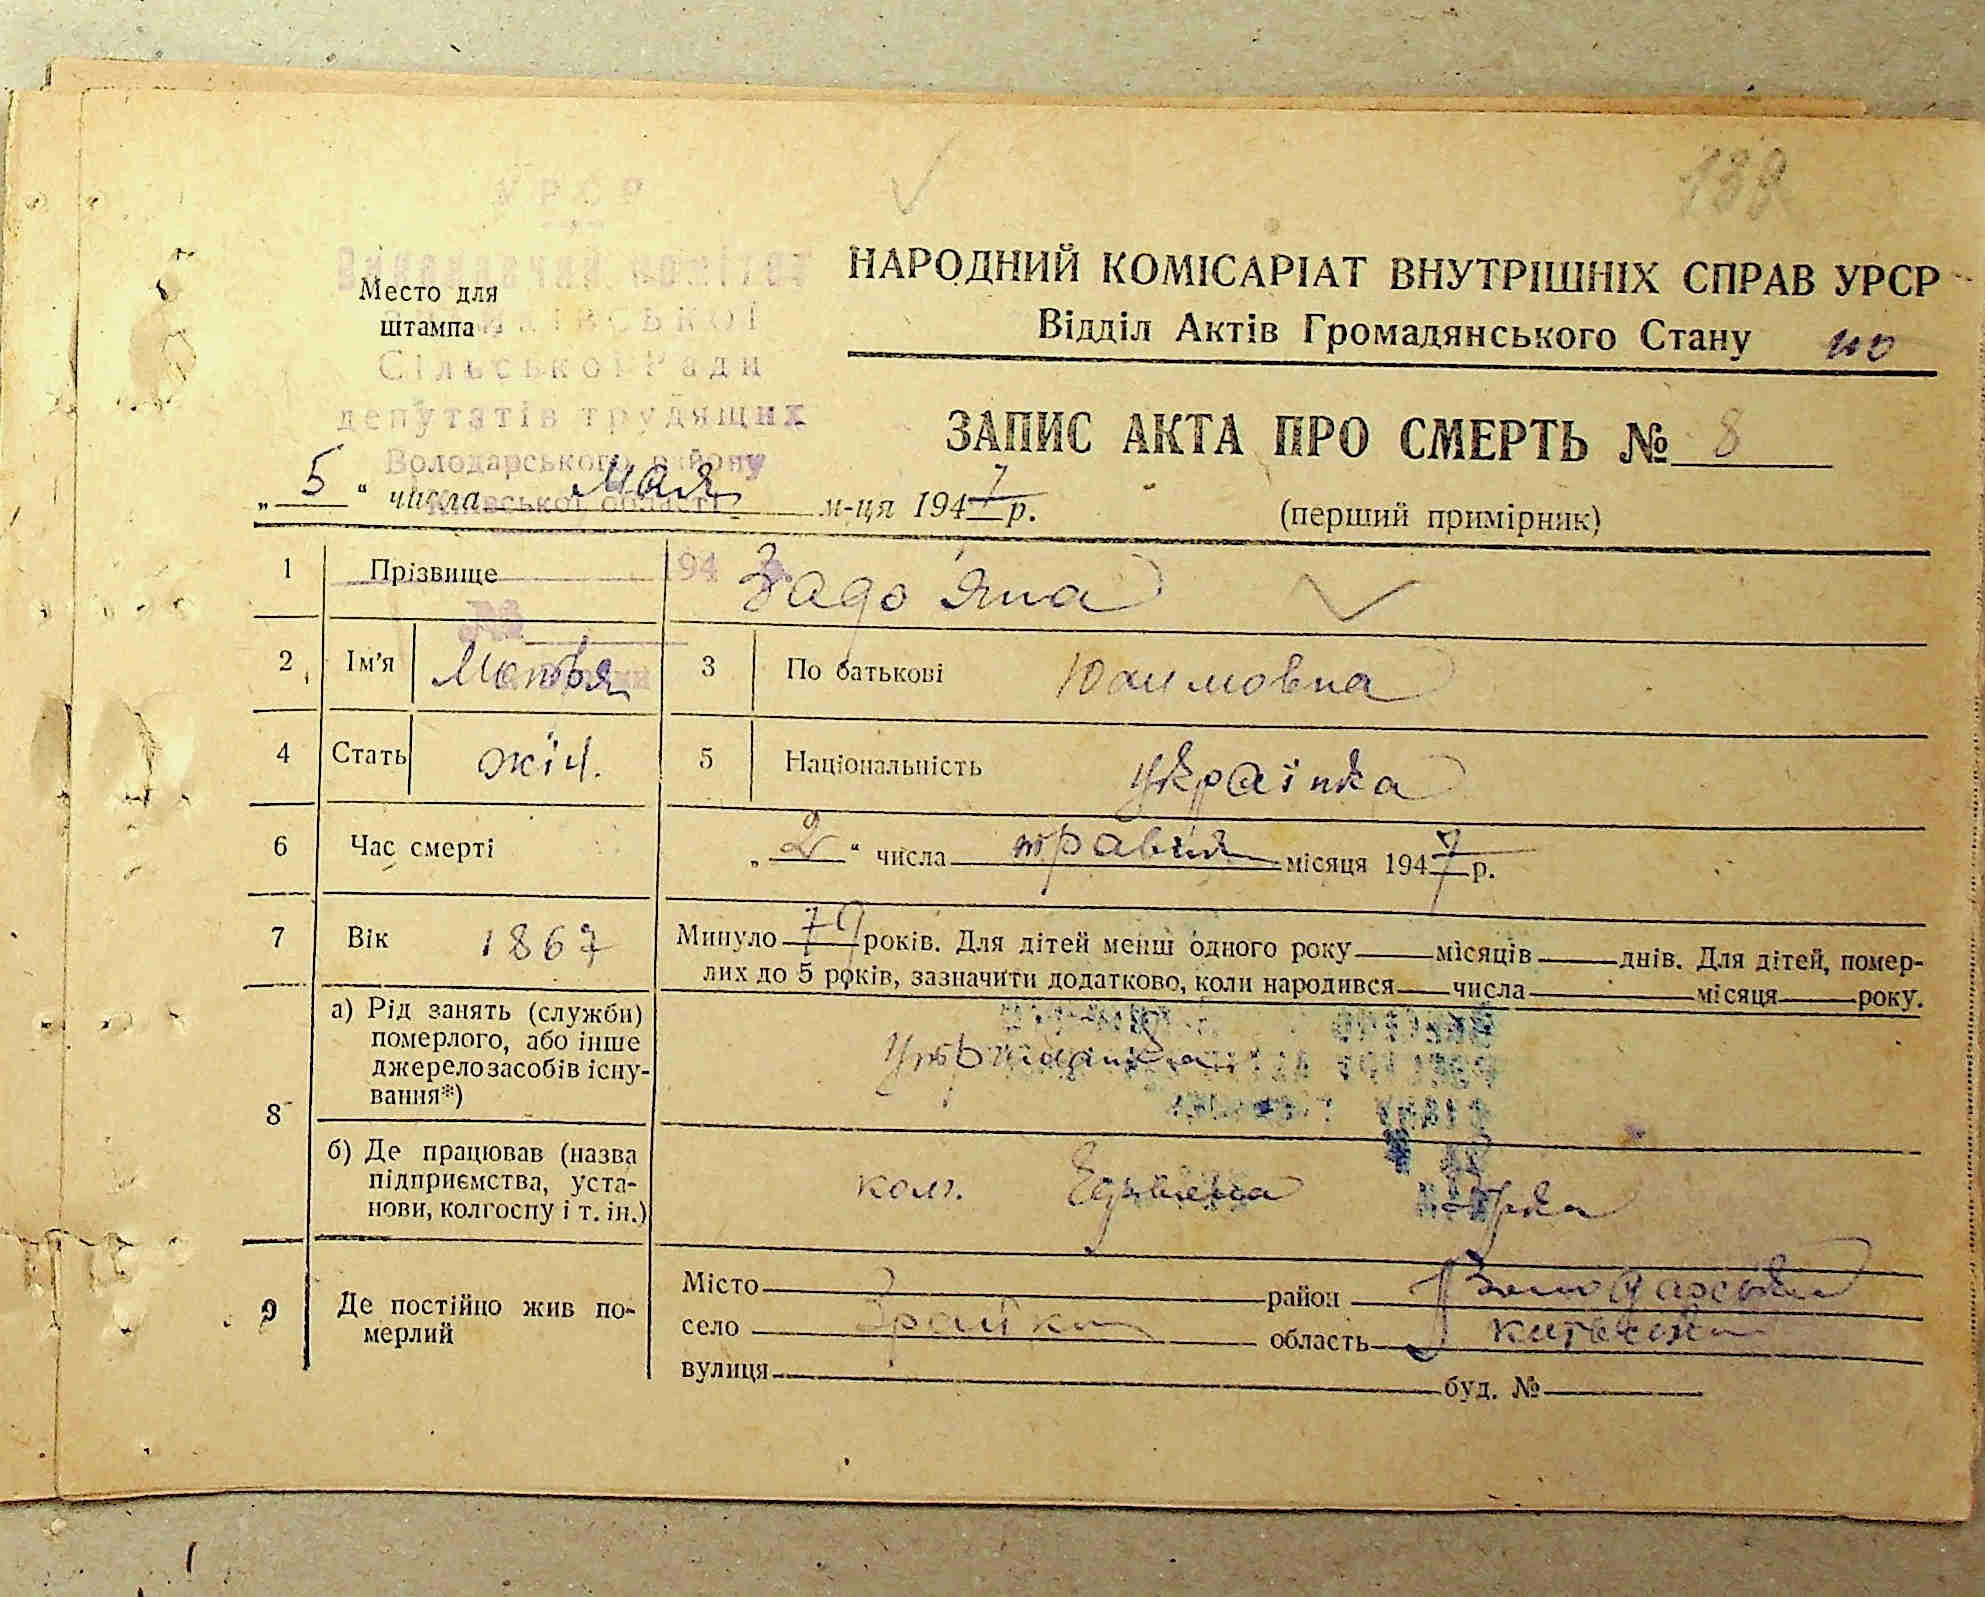 138
УРСР
Виконавчий комітет
Место для
штампа
НАРОДНИЙ КОМІСАРІАТ ВНУТРІШНІХ СПРАВ УРСР
Відділ Актів Громадянського Стану
Сільської Ради
депутатів трудящих
Володарського району
Київської області
ЗАПИС АКТА ПРО СМЕРТЬ № 8
„ 5 “ числа мая м-ця 1947 р.
(перший примірник)
194
№
1 Прізвище Задо'яна
2 Ім'я Мотря 3 По батькові Юхимовна
4 Стать жін. 5 Національність українка
6 Час смерті „ 2 “ числа травня місяця 1947 р.
7 Вік 1867 Минуло 79 років. Для дітей менш одного року місяців днів. Для дітей, помер-
лих до 5 років, зазначити додатково, коли народився числа місяця року.
8 а) Рід занять (служби)
померлого, або інше
джерело засобів існу-
вання*)
утриманка
б) Де працював (назва
підприємства, уста-
нови, колгоспу і т. ін.)
колг.
9 Де постійно жив по-
мерлий
Місто район Володарський
село Зрайки область київська
вулиця буд. №